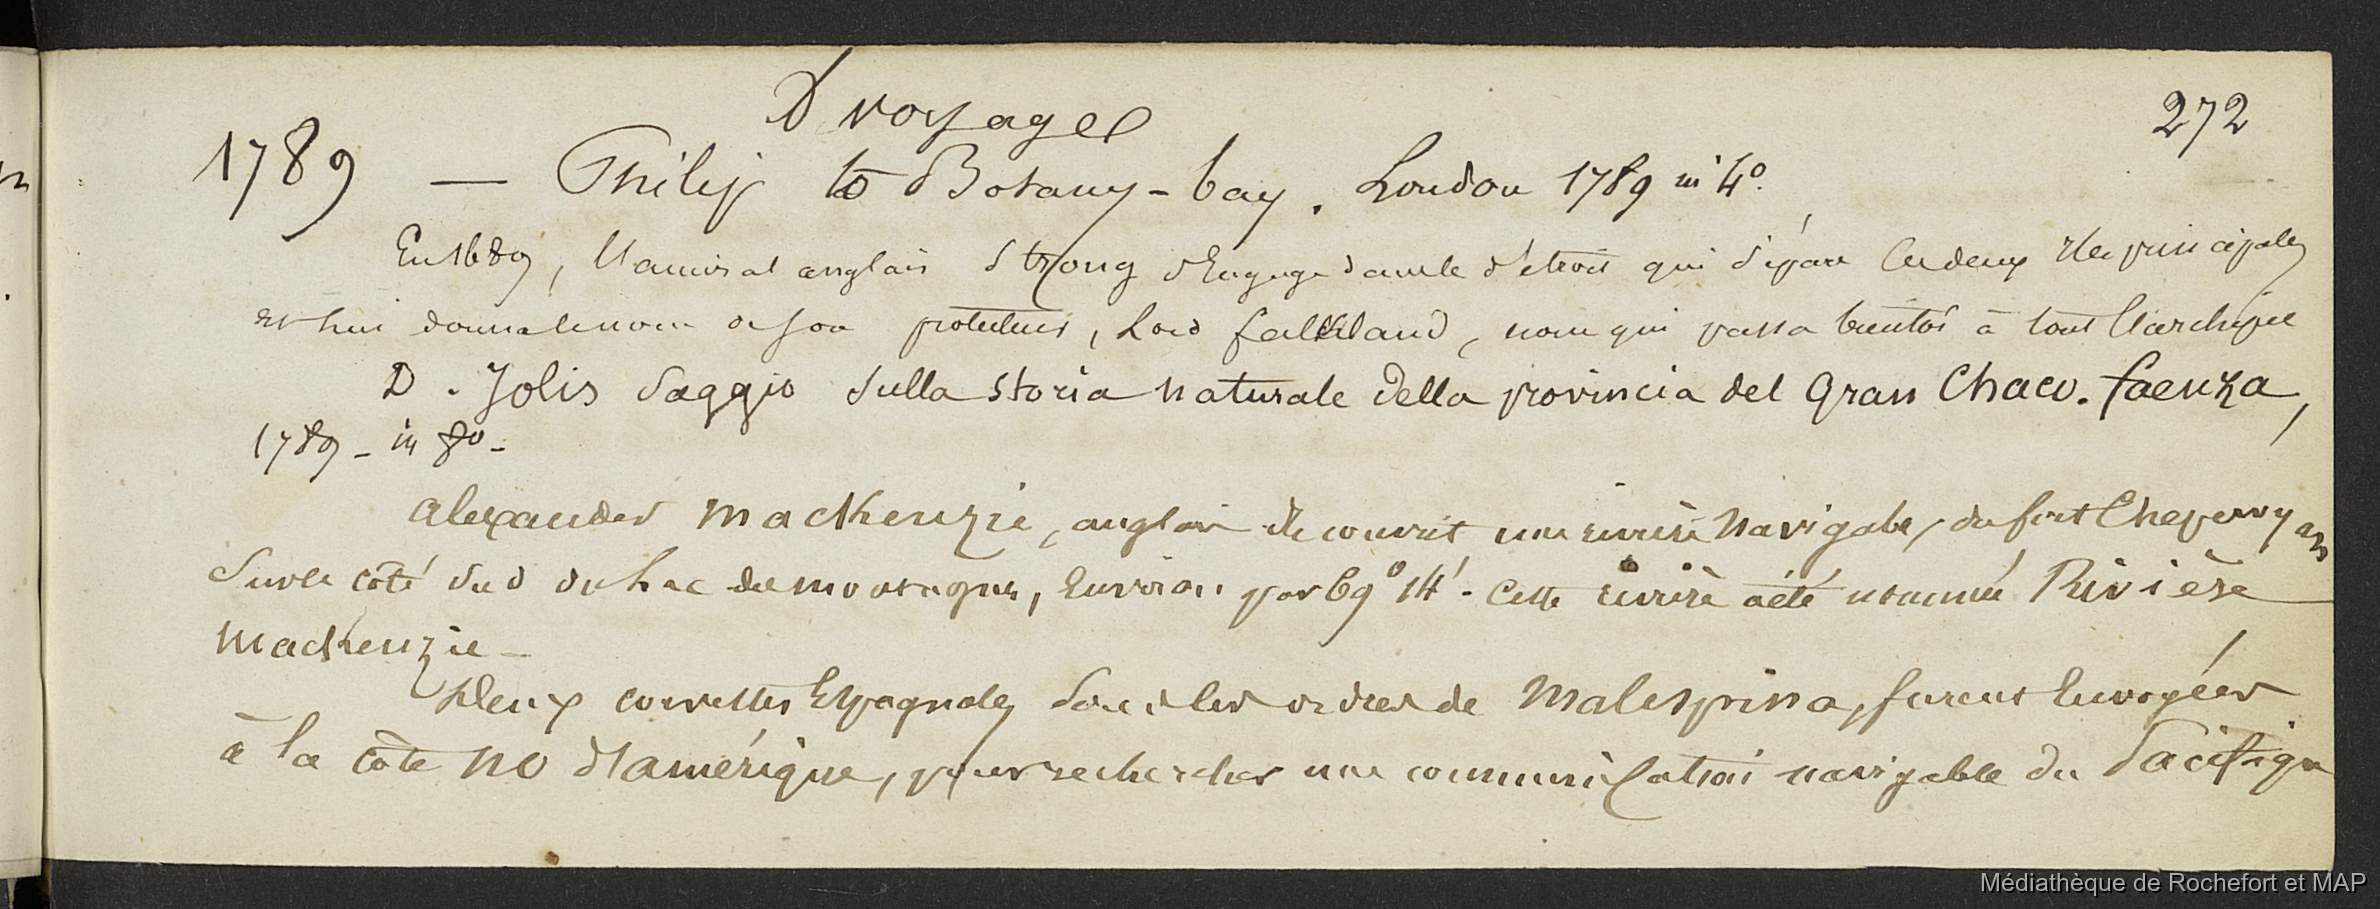 D voyages
272
1789 — Philip to Botany-bay. London 1789 in 4°.
En 1689, l'amiral anglais Strong s'engage dans le détroit qui sépare les deux iles principales
et lui donna le nom de son protecteur, Lord falkland, nom qui passa bientôt à tout l'archipel
D. Jolis Saggio sulla storia naturale della provincia del gran Chaco. faenza,
1789 - in 8° -
alexander Mackenzie, anglais découvrit une rivière navigable, du fort Chepewyan
sur le côté sud du Lac des montagnes, environ par 69° 14'. Cette rivière a été nommée Rivière
Mackenzie -
Deux corvettes Espagnoles sous les ordres de Malespina, furent Envoyées
à la côte NO d'amérique, pour rechercher une communication navigable du Pacifique
Médiathèque de Rochefort et MAP